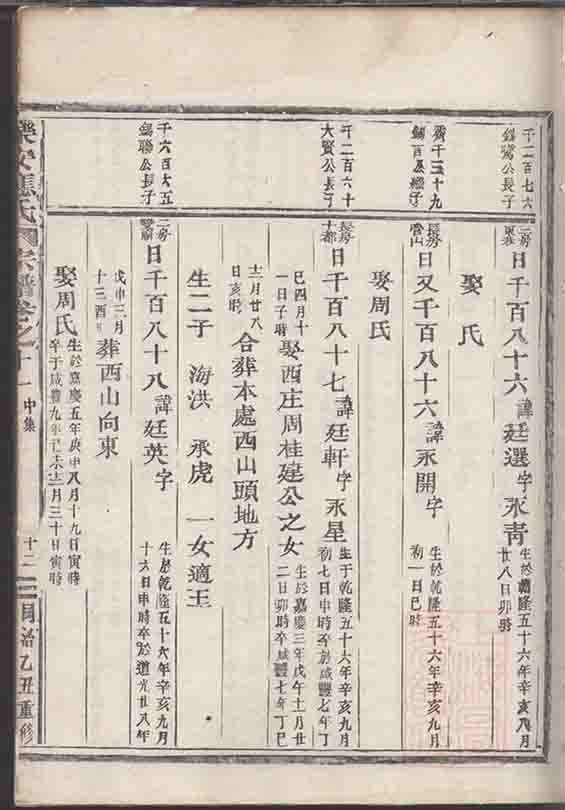 千二百七六
錫鸞公長子
二房
日千百八十六諱廷選字永青
生於乾隆五十六年辛亥八月
廿八日卯時
娶 氏
齊千三十九
錫百公繼子
長房
日又千百八十六諱永開字
生於乾隆五十六年辛亥九月
初一日巳時
娶周氏
千二百六十
大賢公長子
長房
十都
日千百八十七諱廷軒字永星
生于乾隆五十六年辛亥九月
初七日申時卒於咸豐七年丁
巳四月十
一日子時
娶西庄周桂建公之女
生於嘉慶三年戊午十二月廿
二日卯時卒咸豐七年丁巳
十二月廿八
日亥時
合葬本處西山頭地方
生二子 海洪 承虎 一女適王
千六百大五
錫聯公長子
二房
日千百八十八諱廷英字
生於乾隆五十六年辛亥九月
十六日申時卒於道光廿八年
戊申三月
十三酉時
葬西山向東
娶周氏
生於嘉慶五年庚申八月十九日寅時
卒于咸豐九年己未十二月三十日寅時
樂安 氏宗譜卷之十一
中集
十二
同治乙丑重修